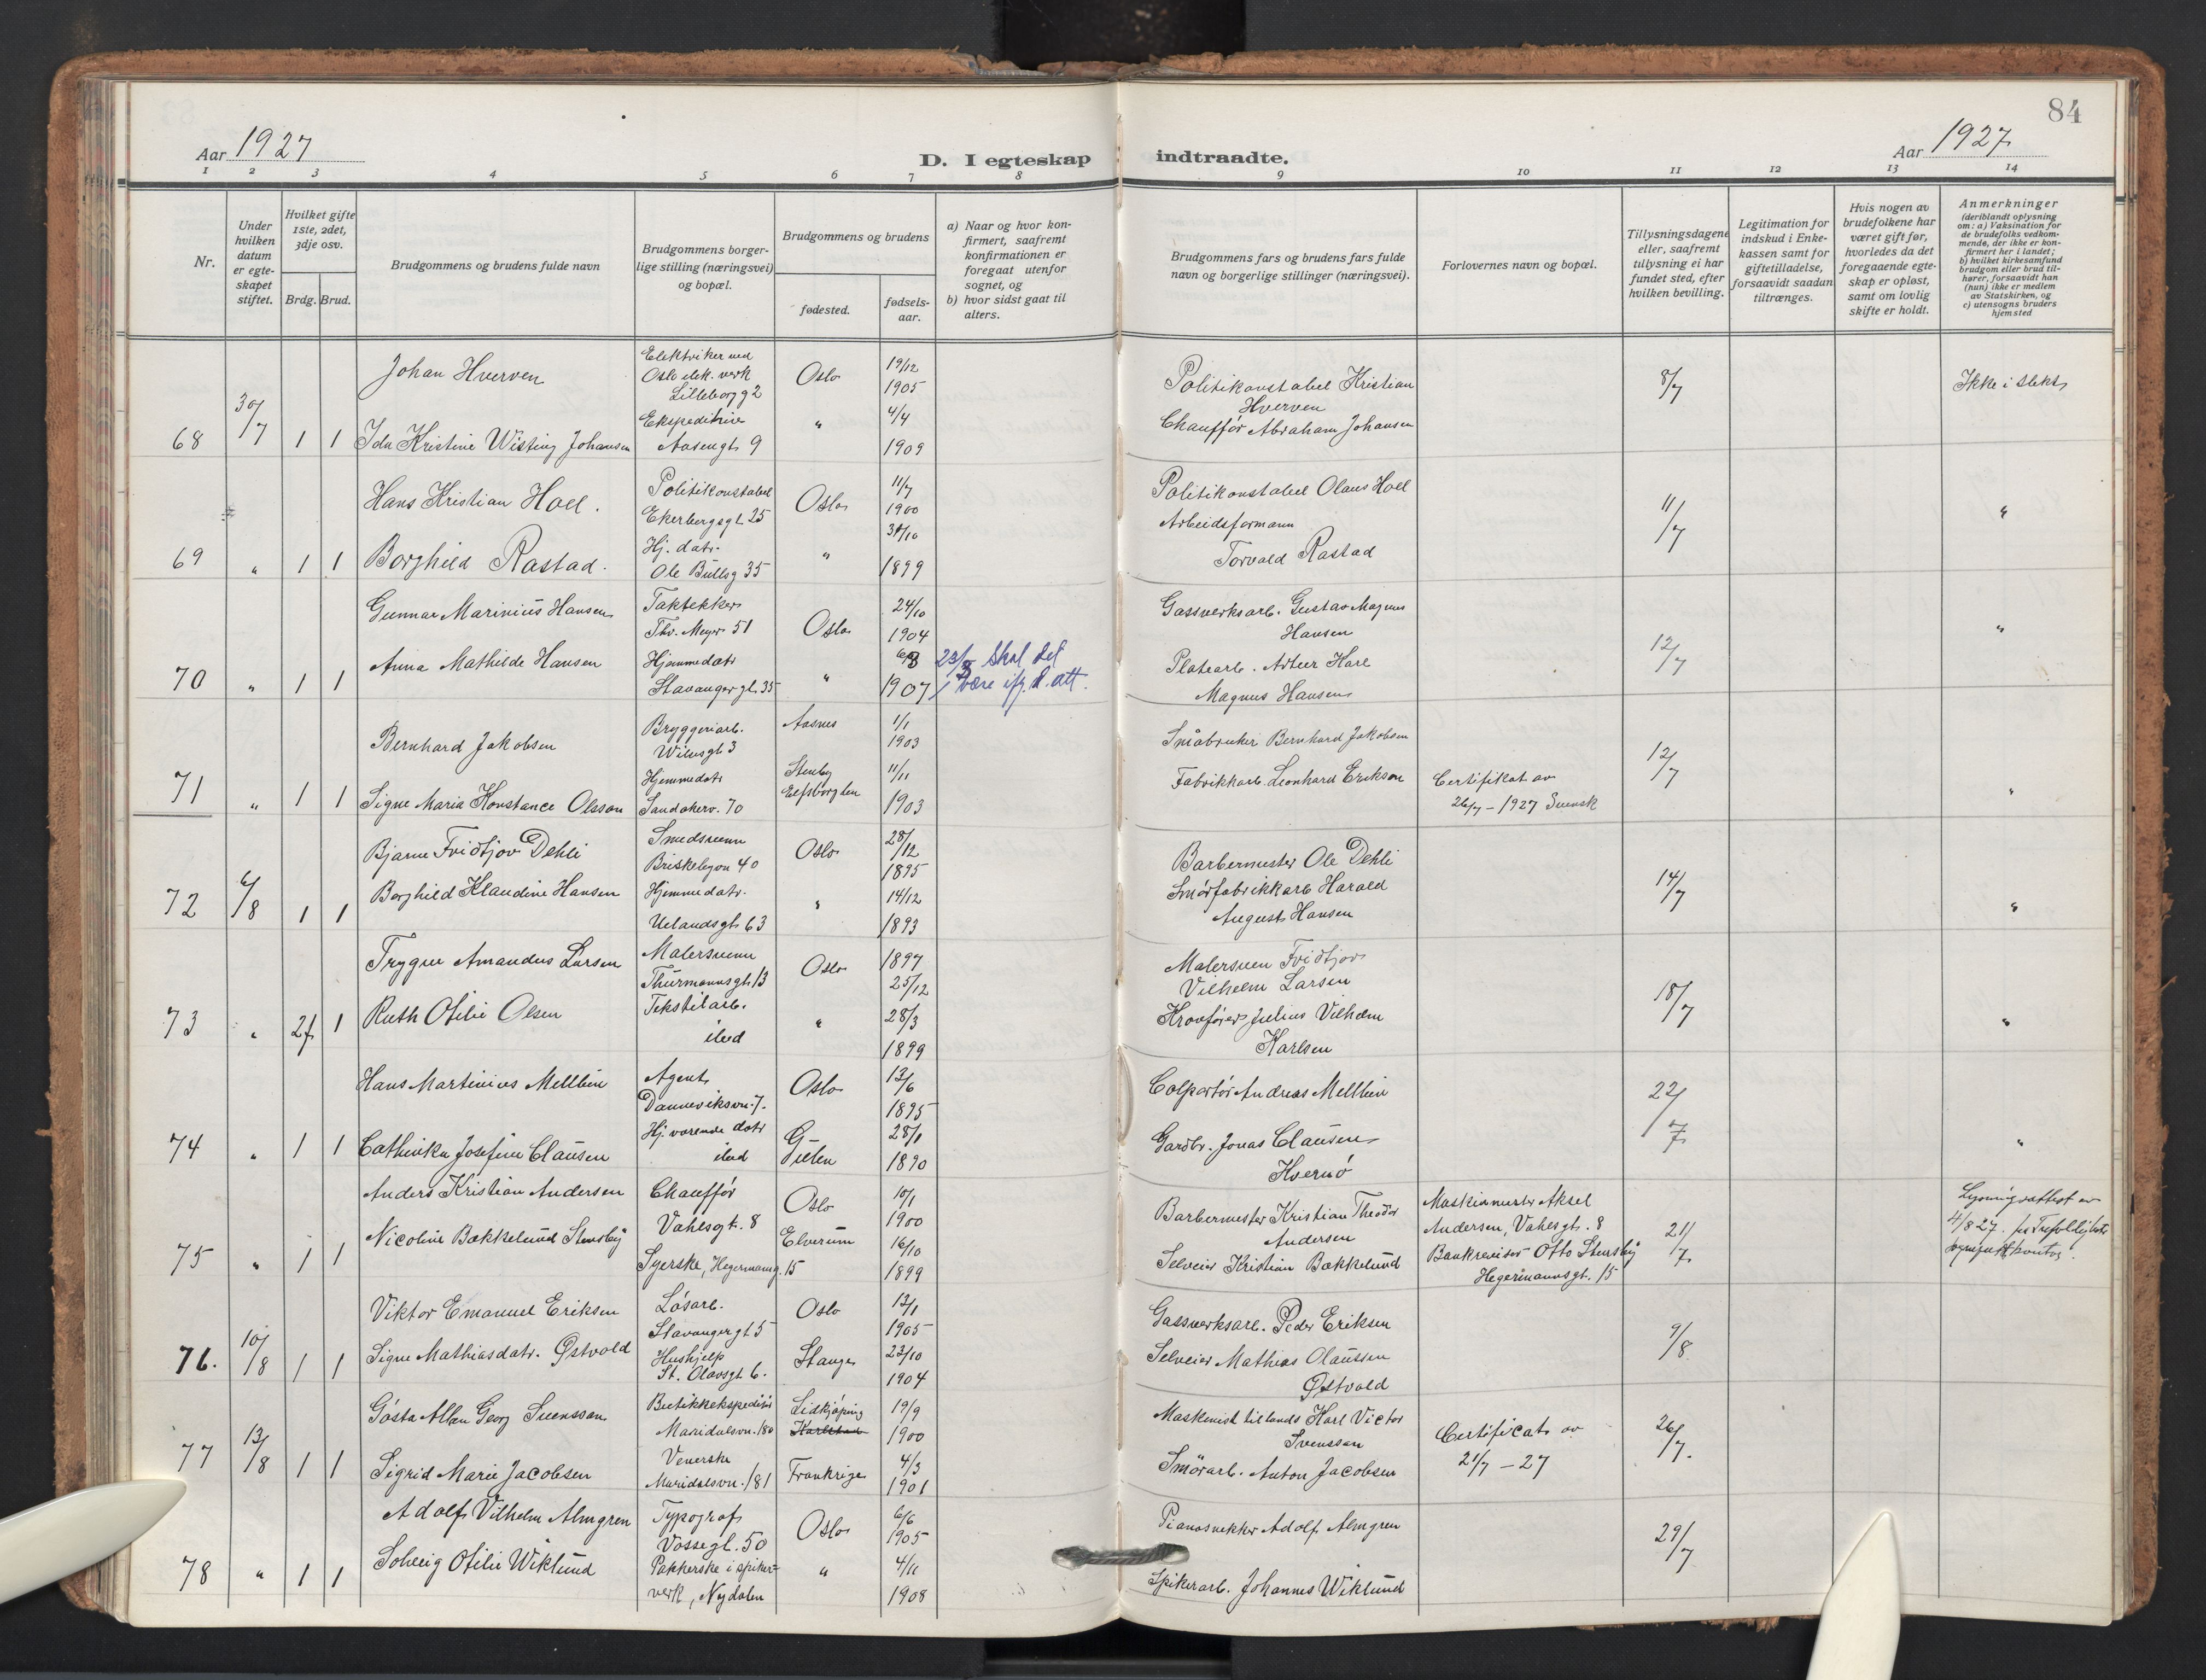 84
Aar 1927
D. I egteskap indtraadte.
Aar 1927
1 2 3 4 5 6 7 8 9 10 11 12 13 14
Nr.
Under hvilken datum er egteskapet stiftet.
Hvilket gifte 1ste, 2det, 3dje osv.
Brdg. Brud.
Brudgommens og brudens fulde navn
Brudgommens borgerlige stilling (næringsvei) og bopæl.
Brudgommens og brudens
fødested.
fødsels-aar.
a) Naar og hvor konfirmert, saafremt konfirmationen er foregaat utenfor sognet, og
b) hvor sidst gaat til alters.
Brudgommens fars og brudens fars fulde navn og borgerlige stillinger (næringsvei).
Forlovernes navn og bopæl.
Tillysningsdagene eller, saafremt tillysning ei har fundet sted, efter hvilken bevilling.
Legitimation for indskud i Enkekassen samt for giftetilladelse, forsaavidt saadan tiltrænges.
Hvis nogen av brudefolkene har været gift før, hvorledes da det foregaaende egteskap er opløst, samt om lovlig skifte er holdt.
Anmerkninger
(deriblandt oplysning om: a) Vaksination for de brudefolks vedkommende, der ikke er konfirmert her i landet;
b) hvilket kirkesamfund brudgom eller brud tilhører, forsaavidt han (hun) ikke er medlem av Statskirken, og
c) utensogns bruders hjemsted
Johan Hverven Elektriker ved Oslo elek. verk Lilleborgg 2 Oslo 19/12 1905 Politikonstabel Kristian Hverven 8/7 Ikke i slekt
68 30/7 1 1 Ida Kristine Wisting Johansen Ekspeditrise Aasengt 9 " 4/4 1909 Chauffør Abraham Johansen
Hans Kristian Hoel. Politikonstabel Ekerbergsgt. 25 Oslo 11/7 1900 Politikonstabel Olaus Hoel 11/7 "
69 " 1 1 Borghild Rastad. Hj. datr. Ole Bullsg 35 " 1899 Arbeidsformann Torvald Rastad
Gunnar Marinius Hansen Taktekker Thv. Meyer 51 Oslo 24/10 1904 Gassverksarb. Gustav Magnus Hansen 12/7 "
70 " 1 1 Anna Mathilde Hansen Hjemmedatr Stavangergt. 35 " 1907 23/5 skal det være ifg. d. att. Platearb. Artur Karl Magnus Hansen
Bernhard Jakobsen Bryggeriarb. Wilsesgt 3 Aasnes 1/1 1903 Småbruker Bernhard Jakobsen 12/7
71 " 1 1 Signe Maria Konstance Olsson Hjemmedatr Sandakerv. 70 Stenby Elfsborg len 11/11 1903 Fabrikkarb. Leonhard Erikson Certifikat av 26/7 - 1927 Svensk "
Bjarne Fridtjov Dehli Smedsvenn Briskebyvn 40 Oslo 28/12 1895 Barbermester Ole Dehli 14/7
72 6/8 1 1 Borghild Klaudine Hansen Hjemmedatr. Uelandsgt 63 " 14/12 1893 Smørfabrikkarb Harald August Hansen "
Trygve Amandus Larsen Malersvenn Thurmannsgt. 13 Oslo 1897 25/12 Malersven Fridtjov Vilhelm Larsen 18/7
73 " 2f 1 Ruth Otilie Olsen Tekstilarb. ibid " 28/3 1899 Julius Vilhelm Karlsen "
Hans Martinius Mellbin Agent Danneviksvn. 7. Oslo 13/6 1895 Colportør Andreas Mellbin 22/7
74 " 1 1 Cathinka Josefine Clausen Hj. værende datr ibid 28/1 1890 Gardbr. Jonas Clausen Hvernø "
Anders Kristian Andersen Chauffør Vahlsgt. 8 Oslo 10/1 1900 Barbermester Kristian Theodor Andersen Maskinmester Aksel Andersen, Vahlsgt. 8 21/7 Lysningsattest av 4/8 27.
75 " 1 1 Nicoline Bækkelund Stensby Syerske, Hegermannsg. 15 Elverum 16/10 1899 Selveier Kristian Bækkelund Bankrevisor Otto Stensby Hegermannsgt. 15
Viktor Emanuel Eriksen Løsarb. Stavangergt 5 Oslo 13/1 1905 Gassverksarb. Peder Eriksen 9/8
76. 10/8 1 1 Signe Mathiasdatr. Østvold Hushjelp St. Olavsgt 6. Stange 23/10 1904 Selveier Mathias Olaussen Østvold
Gösta Allan Georg Svensson Butikkekspeditør Maridalsvn. 180 Lidkjøping Karlstad 19/9 1900 Maskinist tillands Karl Victor Svensson Certificat av 21/7 - 27 26/7.
77 13/8 1 1 Sigrid Marie Jacobsen Veverske Maridalsvn. 181 Frankrige 4/3 1901 Smörarb. Anton Jacobsen
Adolf Vilhelm Almgren Typograf Vossegt. 50 Oslo 6/6 1905 Pianosnekker Adolf Almgren 29/7
78 " 1 1 Solveig Otilie Wiklund Pakkerske i spikerverk, Nydalen " 4/11 1908 Spikerarb. Johannes Wiklund